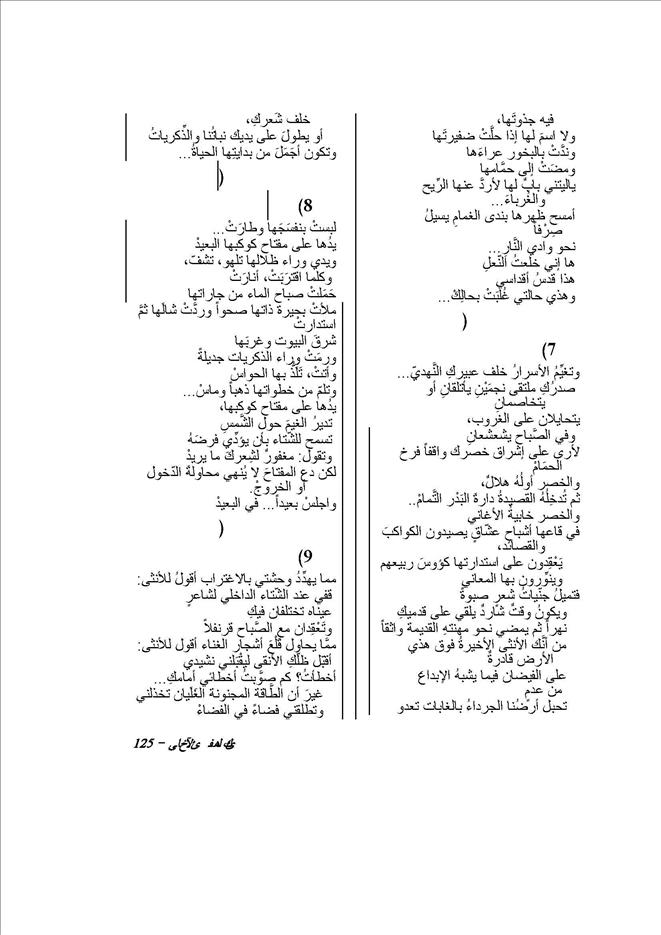 فيه جذوتَها،
ولا اسمَ لها إذا حلَّتْ ضفيرتَها
وندَّتْ بالبخور عراءَها
ومضَتْ إلى حمَّامها
ياليتني بابٌ لها لأردَّ عنها الرِّيح
والغرباءَ...
أمسح ظهرها بندى الغمامِ يسيلُ
صِرْفاً
نحو وادي النَّار...
ها إني خلعتُ النَّعلَ
هذا قدْسُ أقداسي
وهذي حالتي غُلِبَتْ بحالِكْ...
(
7)
وتغيِّمُ الأسرارُ خلف عبيركِ النَّهديّ...
صدرُكِ ملتقى نجمَيْنِ يأتلقانِ أو
يتخاصمانِ
يتحايلان على الغروب،
وفي الصَّباح يشعشعانِ
لأرى على إشراق خصرك واقفاً فرخَ
الحمَامْ
والخصر أولُهُ هلالٌ،
ثم تُدخِلُهُ القصيدةُ دارةَ البَدْر التَّمامْ..
والخصر خابيةُ الأغاني
في قاعها أشباح عشّاقٍ يصيدون الكواكبَ
والقصائد،
يَعْقِدون على استدارتها كؤوسَ ربيعهم
وينوِّرون بها المعاني
فتميلُ جنّياتُ شعرٍ صبوةً
ويكونُ وقتٌ شاردٌ يلقي على قدميكِ
نهراً ثم يمضي نحو مهنتهِ القديمة واثقاً
من أنَّك الأنثى الأخيرةُ فوق هذي
الأرض قادرةٌ
على الفيضان فيما يشبهُ الإبداع
من عدمٍ
تحبل أرضُنا الجرداءُ بالغابات تعدو
خلف شَعركِ،
أو يطولَ على يديك نباتُنا والذِّكرياتُ
وتكون أجمَلَ من بدايتِها الحياةُ...
(
8)
لبستْ بنفسَجَها وطارَتْ...
يدُها على مفتاح كوكبها البعيدْ
ويدي وراء ظلالها تلهو، تشفّ،
وكلَّما اقتربَتْ، أنارَتْ
حَمَلتْ صباح الماء من جاراتها
ملأتْ بحيرة ذاتها صحواً وردَّتْ شالَها ثمَّ
استدارتْ
شرقَ البيوت وغربَها
ورمَتْ وراء الذكريات جديلةً
وأتتْ، تَلَذُّ بها الحواسْ
وتلمّ من خطواتها ذهباً وماسْ...
يدُها على مفتاح كوكبها،
تديرُ الغيمَ حول الشَّمسِ
تسمح للشّتاء بأن يؤدِّي فرضَهُ
وتقولُ: مغفورٌ لشِعركَ ما يريدْ
لكن دع المفتاحَ لا يُنهي محاولةَ الدّخول
أو الخروجْ.
واجلسْ بعيداً... في البعيدْ
(
9)
مما يهدِّدُ وحشتي بالاغتراب أقولُ للأنثى:
قفي عند الشّتاء الداخلي لشاعرٍ
عيناه تختلفان فيكِ
وتَعْقِدان مع الصَّباح قرنفلاً
ممَّا يحاول قَلْعَ أشجار الغناء أقول للأنثى:
أقبْل ظلَّكِ الأنقى ليقْبَلني نشيدي
أخطأتُ؟ كم صوَّبتُ أخطائي أمامكِ...
غيرَ أن الطَّاقة المجنونة الغَليان تخذلني
وتطلقني فضاءً في الفضاءْ
– 125